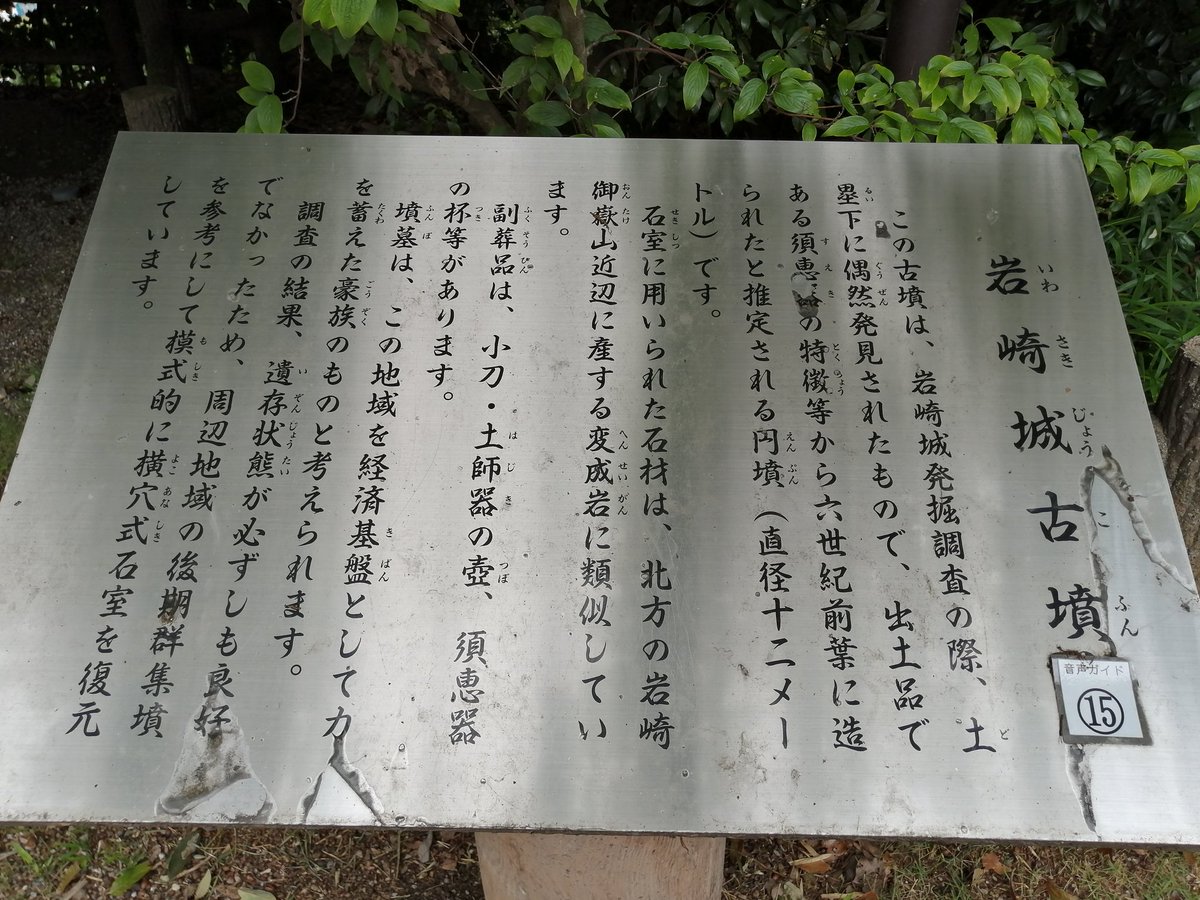 岩崎城古墳
いわさきじょうこふん
音声ガイド
⑮
この古墳は、岩崎城発掘調査の際、土
塁下に偶然発見されたもので、出土品で
ある須恵器の特徴等から六世紀前葉に造
られたと推定される円墳（直径十二メー
トル）です。
石室に用いられた石材は、北方の岩崎
御嶽山近辺に産する変成岩に類似してい
ます。
副葬品は、小刀・土師器の壺、須恵器
の杯等があります。
墳墓は、この地域を経済基盤として力
を蓄えた豪族のものと考えられます。
調査の結果、遺存状態が必ずしも良好
でなかったため、周辺地域の後期群集墳
を参考にして模式的に横穴式石室を復元
しています。